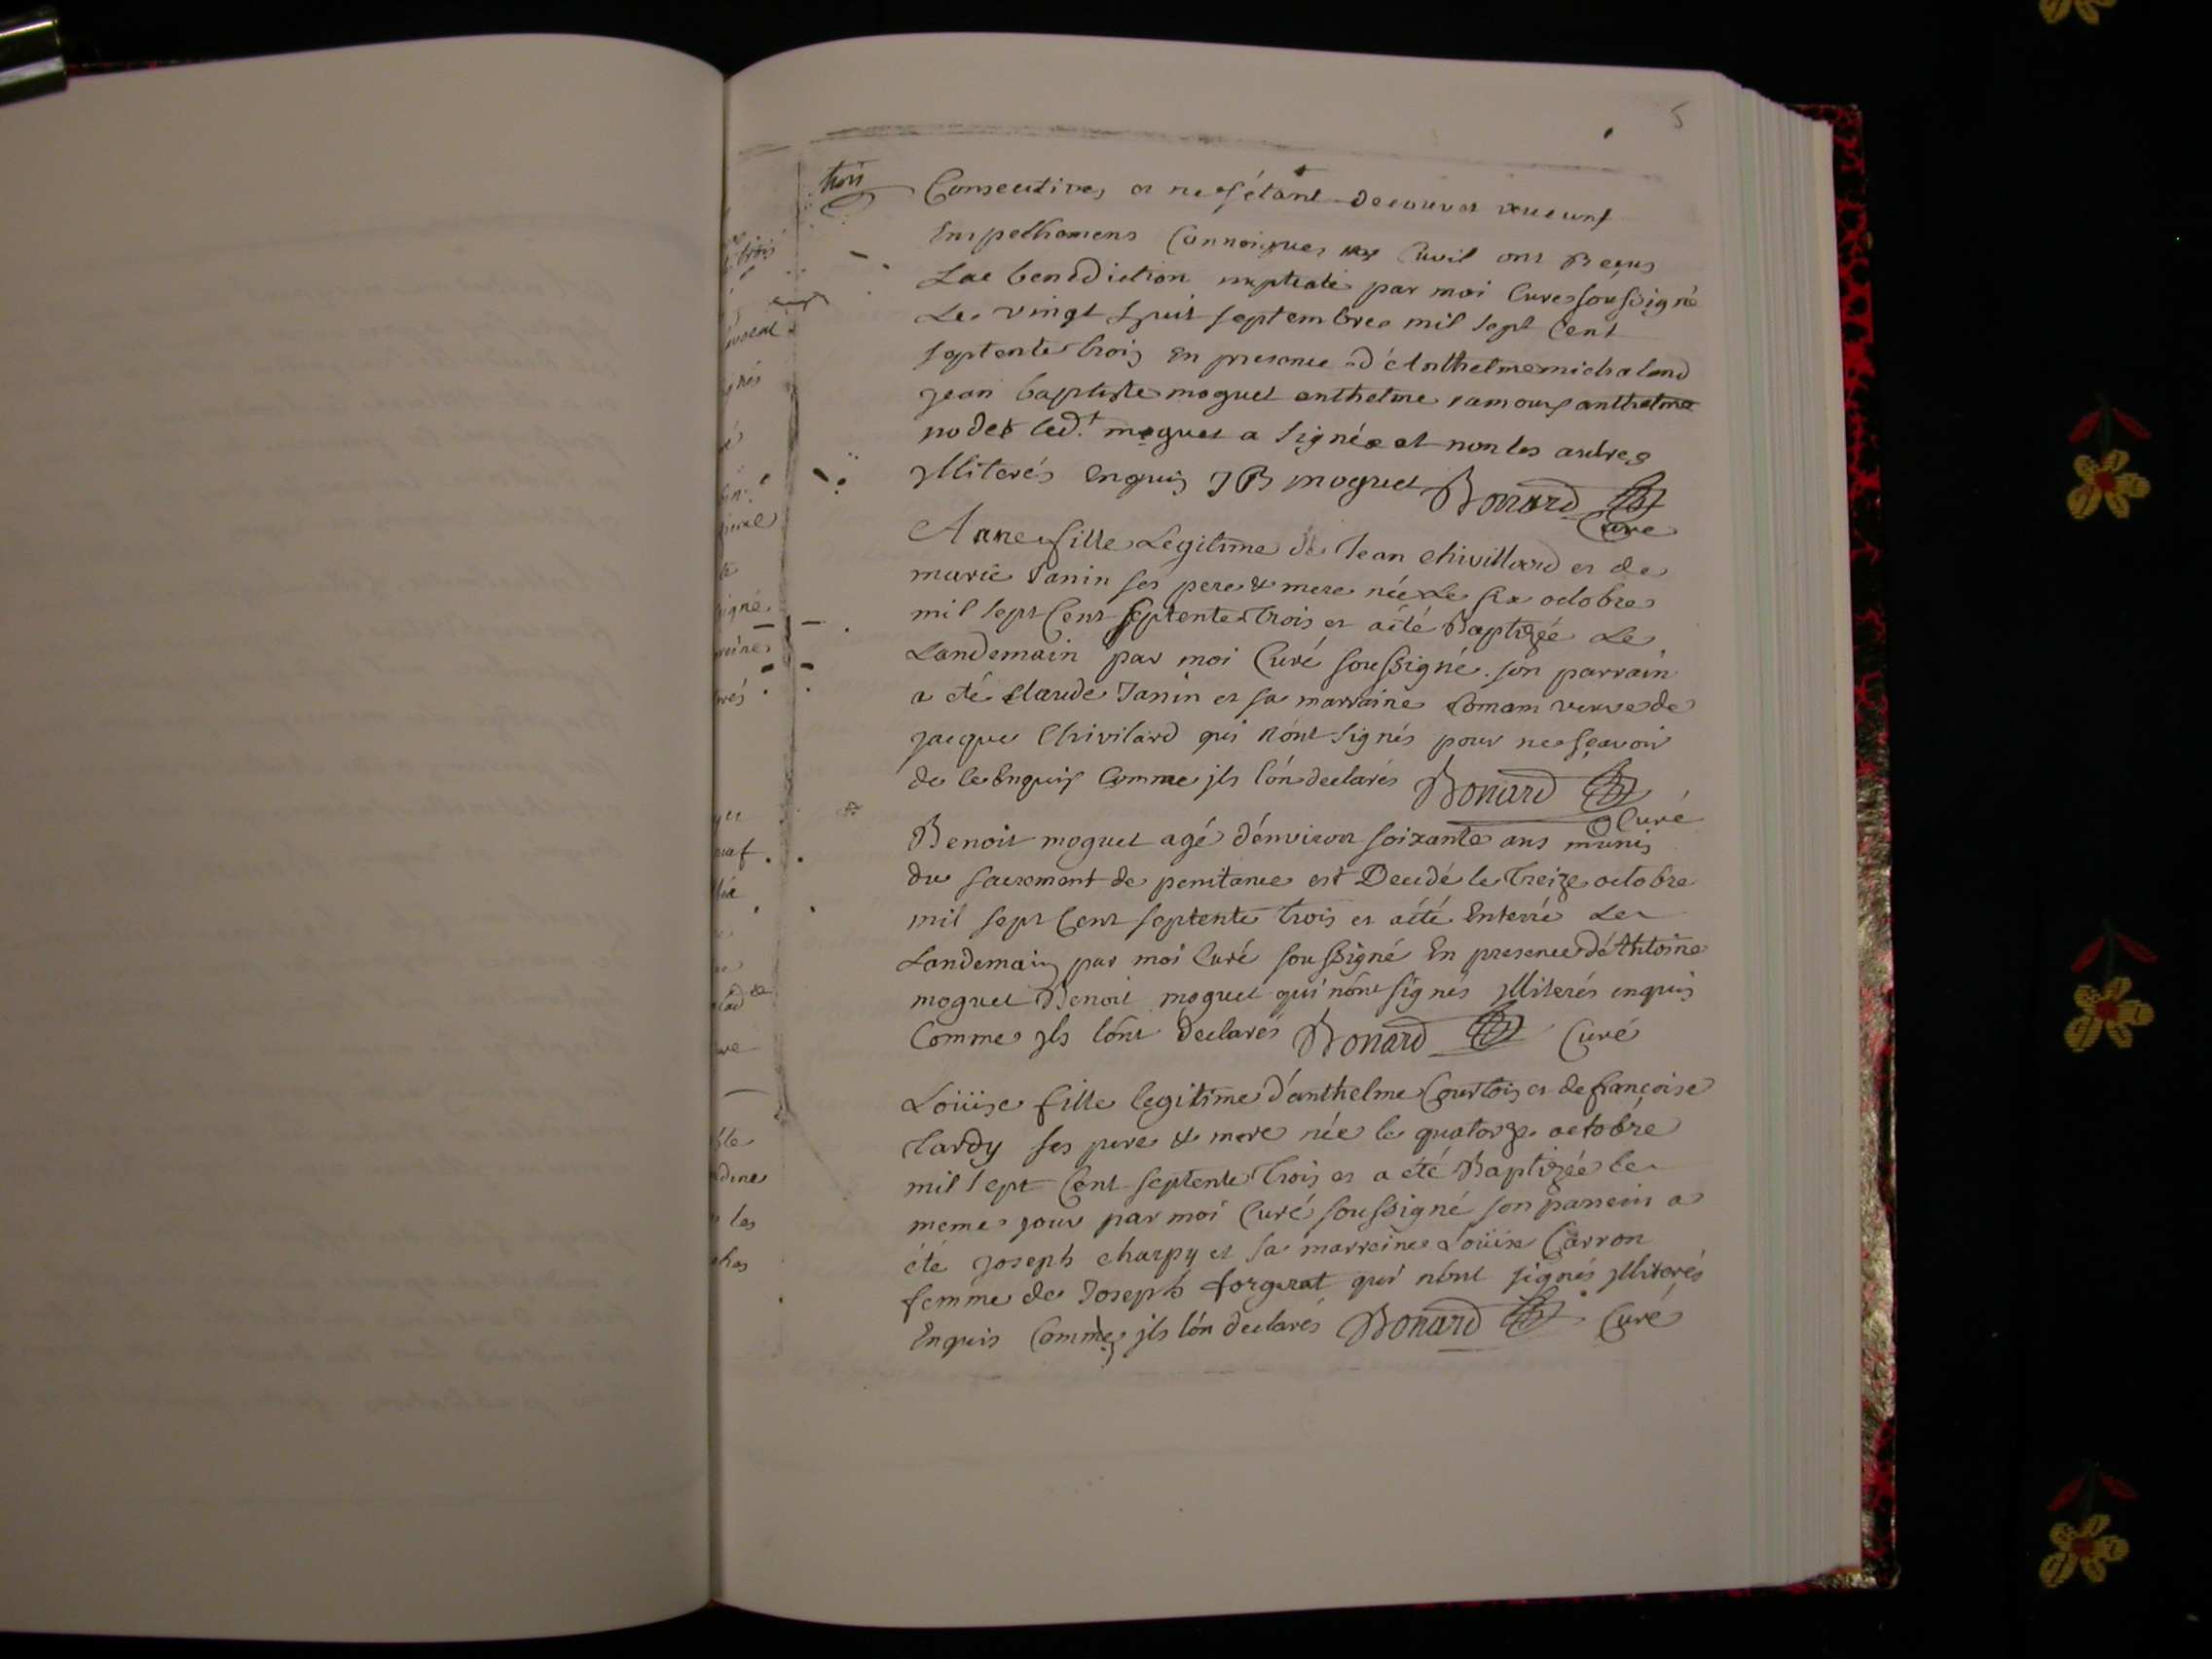 5
trois
Consecutives et ne s'étant decouvert aucuns
Empechemens Cannoniques ny Civil ont Reçus
Lae benediction nuptiale par moi Curé soussigné
Le vingt huit septembre mil sept Cent
septente trois En presence d'Anthelme michaland
jean baptiste moguet anthelme ramoux anthelme
nodet led.t moguet a signée et non les autres
jlliterés Enquis JB moguet Bonard
Curé
Anne fille Legitime de Jean Chivillard et de
marie Janin ses pere & mere née Le six octobre
mil sept Cent septente trois et aété Baptizée Le
Landemain par moi Curé soussigné. son parrain
a été Claude Janin et sa marraine veuve de
jacque Chivilard qui n'ont signés pour ne sçavoir
de ce Enquis Comme jls l'ón declarés Bonard
Curé
Benoit moguet agé d'énviron soixante ans munis
du sacrement de penitance est Decedé le Treize octobre
mil sept Cent septente trois et aété Enterré Le
Landemain par moi Curé soussigné En presence d'Anthoine
moguet Benoit moguet qui n'ónt signés jlliterés enquis
Comme jls l'ónt declarés Bonard Curé
Loüise fille legitime d'anthelme Courtois et de françoise
tardy ses pere & mere née le quatorze octobre
mil sept Cent septente trois et a été Baptizée le
meme jour par moi Curé soussigné son parrein a
été joseph charpy et sa marreine Loüise Carron
femme de Joseph forgerat qui n'ónt signés jlliterés
Enquis Comme jls l'ón declarés Bonard Curé